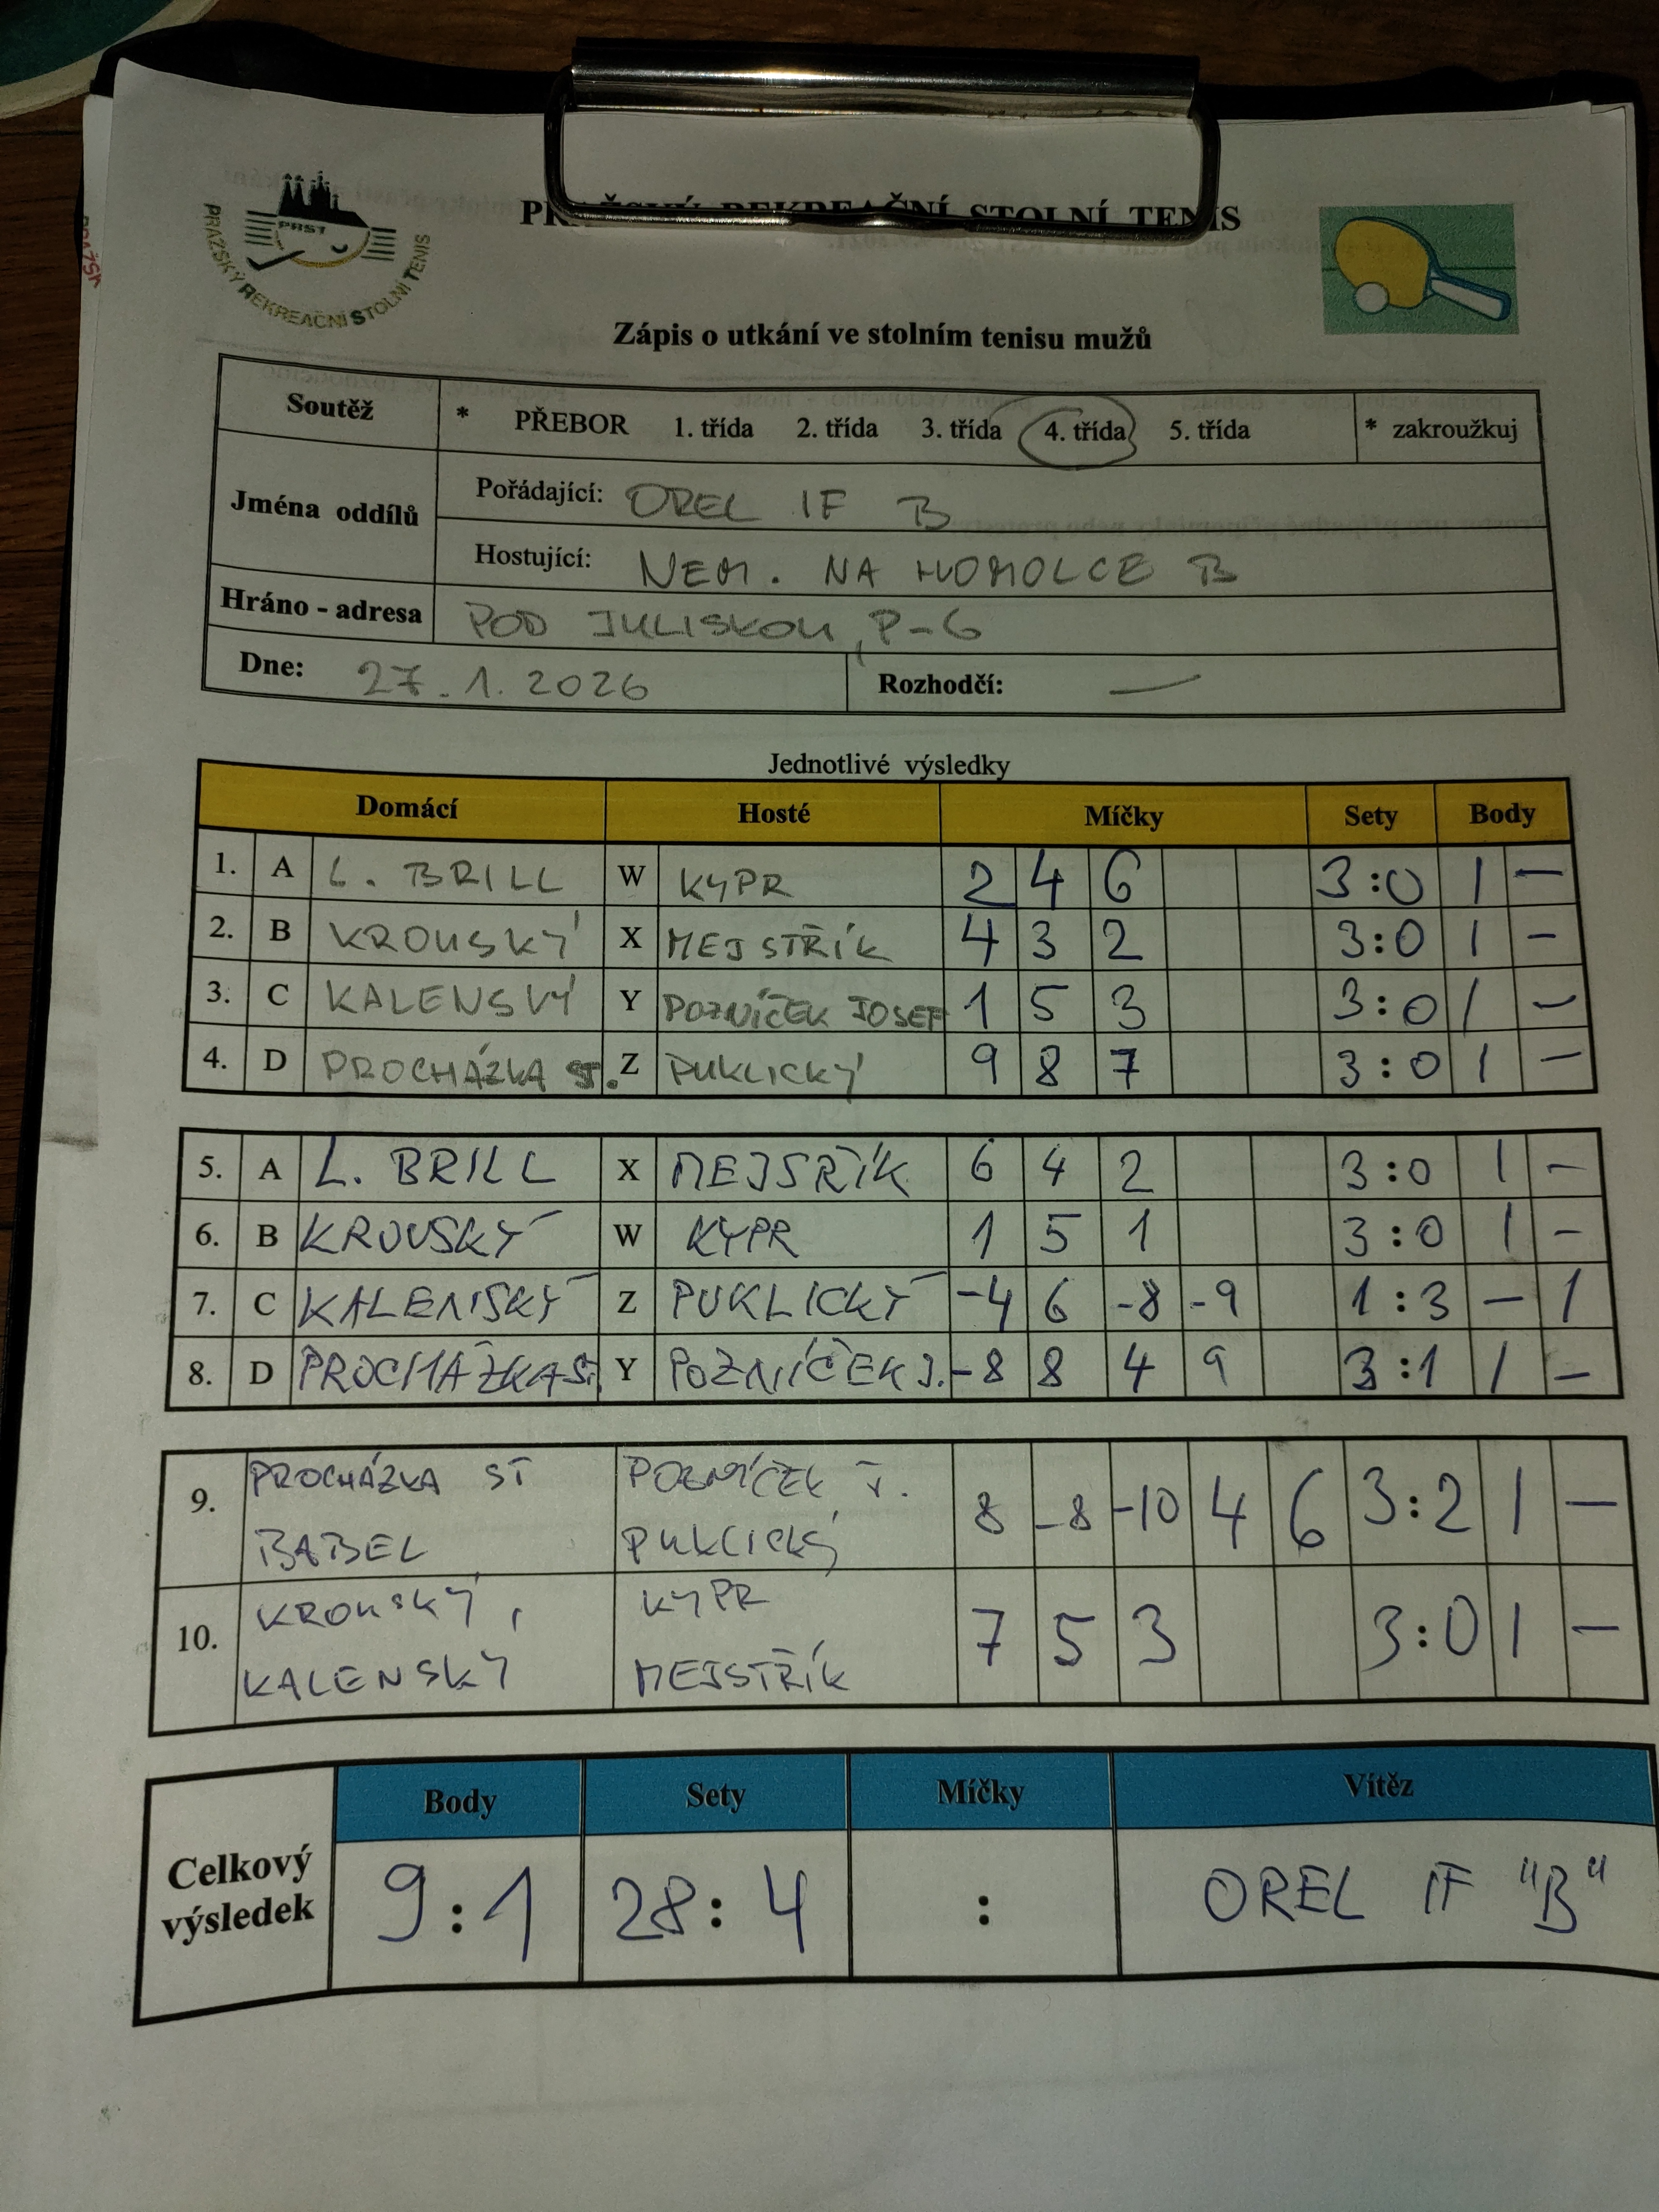 PRAŽSKÝ REKREAČNÍ STOLNÍ TENIS
PRST
PRAŽSKÝ REKREAČNÍ STOLNÍ TENIS
Zápis o utkání ve stolním tenisu mužů
Soutěž * PŘEBOR 1. třída 2. třída 3. třída 4. třída 5. třída * zakroužkuj
Jména oddílů
Pořádající: OREL IF B
Hostující: NEM. NA HOMOLCE B
Hráno - adresa POD JULISKOU, P-6
Dne: 27.1.2026 Rozhodčí: —
Jednotlivé výsledky
Domácí Hosté Míčky Sety Body
1. A L. BRILL W KYPR 2 4 6 3:0 1 —
2. B KROUSKÝ X MEJSTŘÍK 4 3 2 3:0 1 —
3. C KALENSKÝ Y POZNÍČEK JOSEF 1 5 3 3:0 1 —
4. D PROCHÁZKA ST. Z PUKLICKÝ 9 8 7 3:0 1 —
5. A L. BRILL X MEJSŘÍK 6 4 2 3:0 1 —
6. B KROUSKÝ W KYPR 1 5 1 3:0 1 —
7. C KALENSKÝ Z PUKLICKÝ -4 6 -8 -9 1:3 — 1
8. D PROCHÁZKA ST. Y POZNÍČEK J. -8 8 4 9 3:1 1 —
9. PROCHÁZKA ST POZNÍČEK J. 8 -8 -10 4 6 3:2 1 —
BABEL PUKLICKÝ
10. KROUSKÝ, KYPR 7 5 3 3:0 1 —
KALENSKÝ MEJSTŘÍK
Body Sety Míčky Vítěz
Celkový výsledek 9:1 28:4 : OREL IF "B"